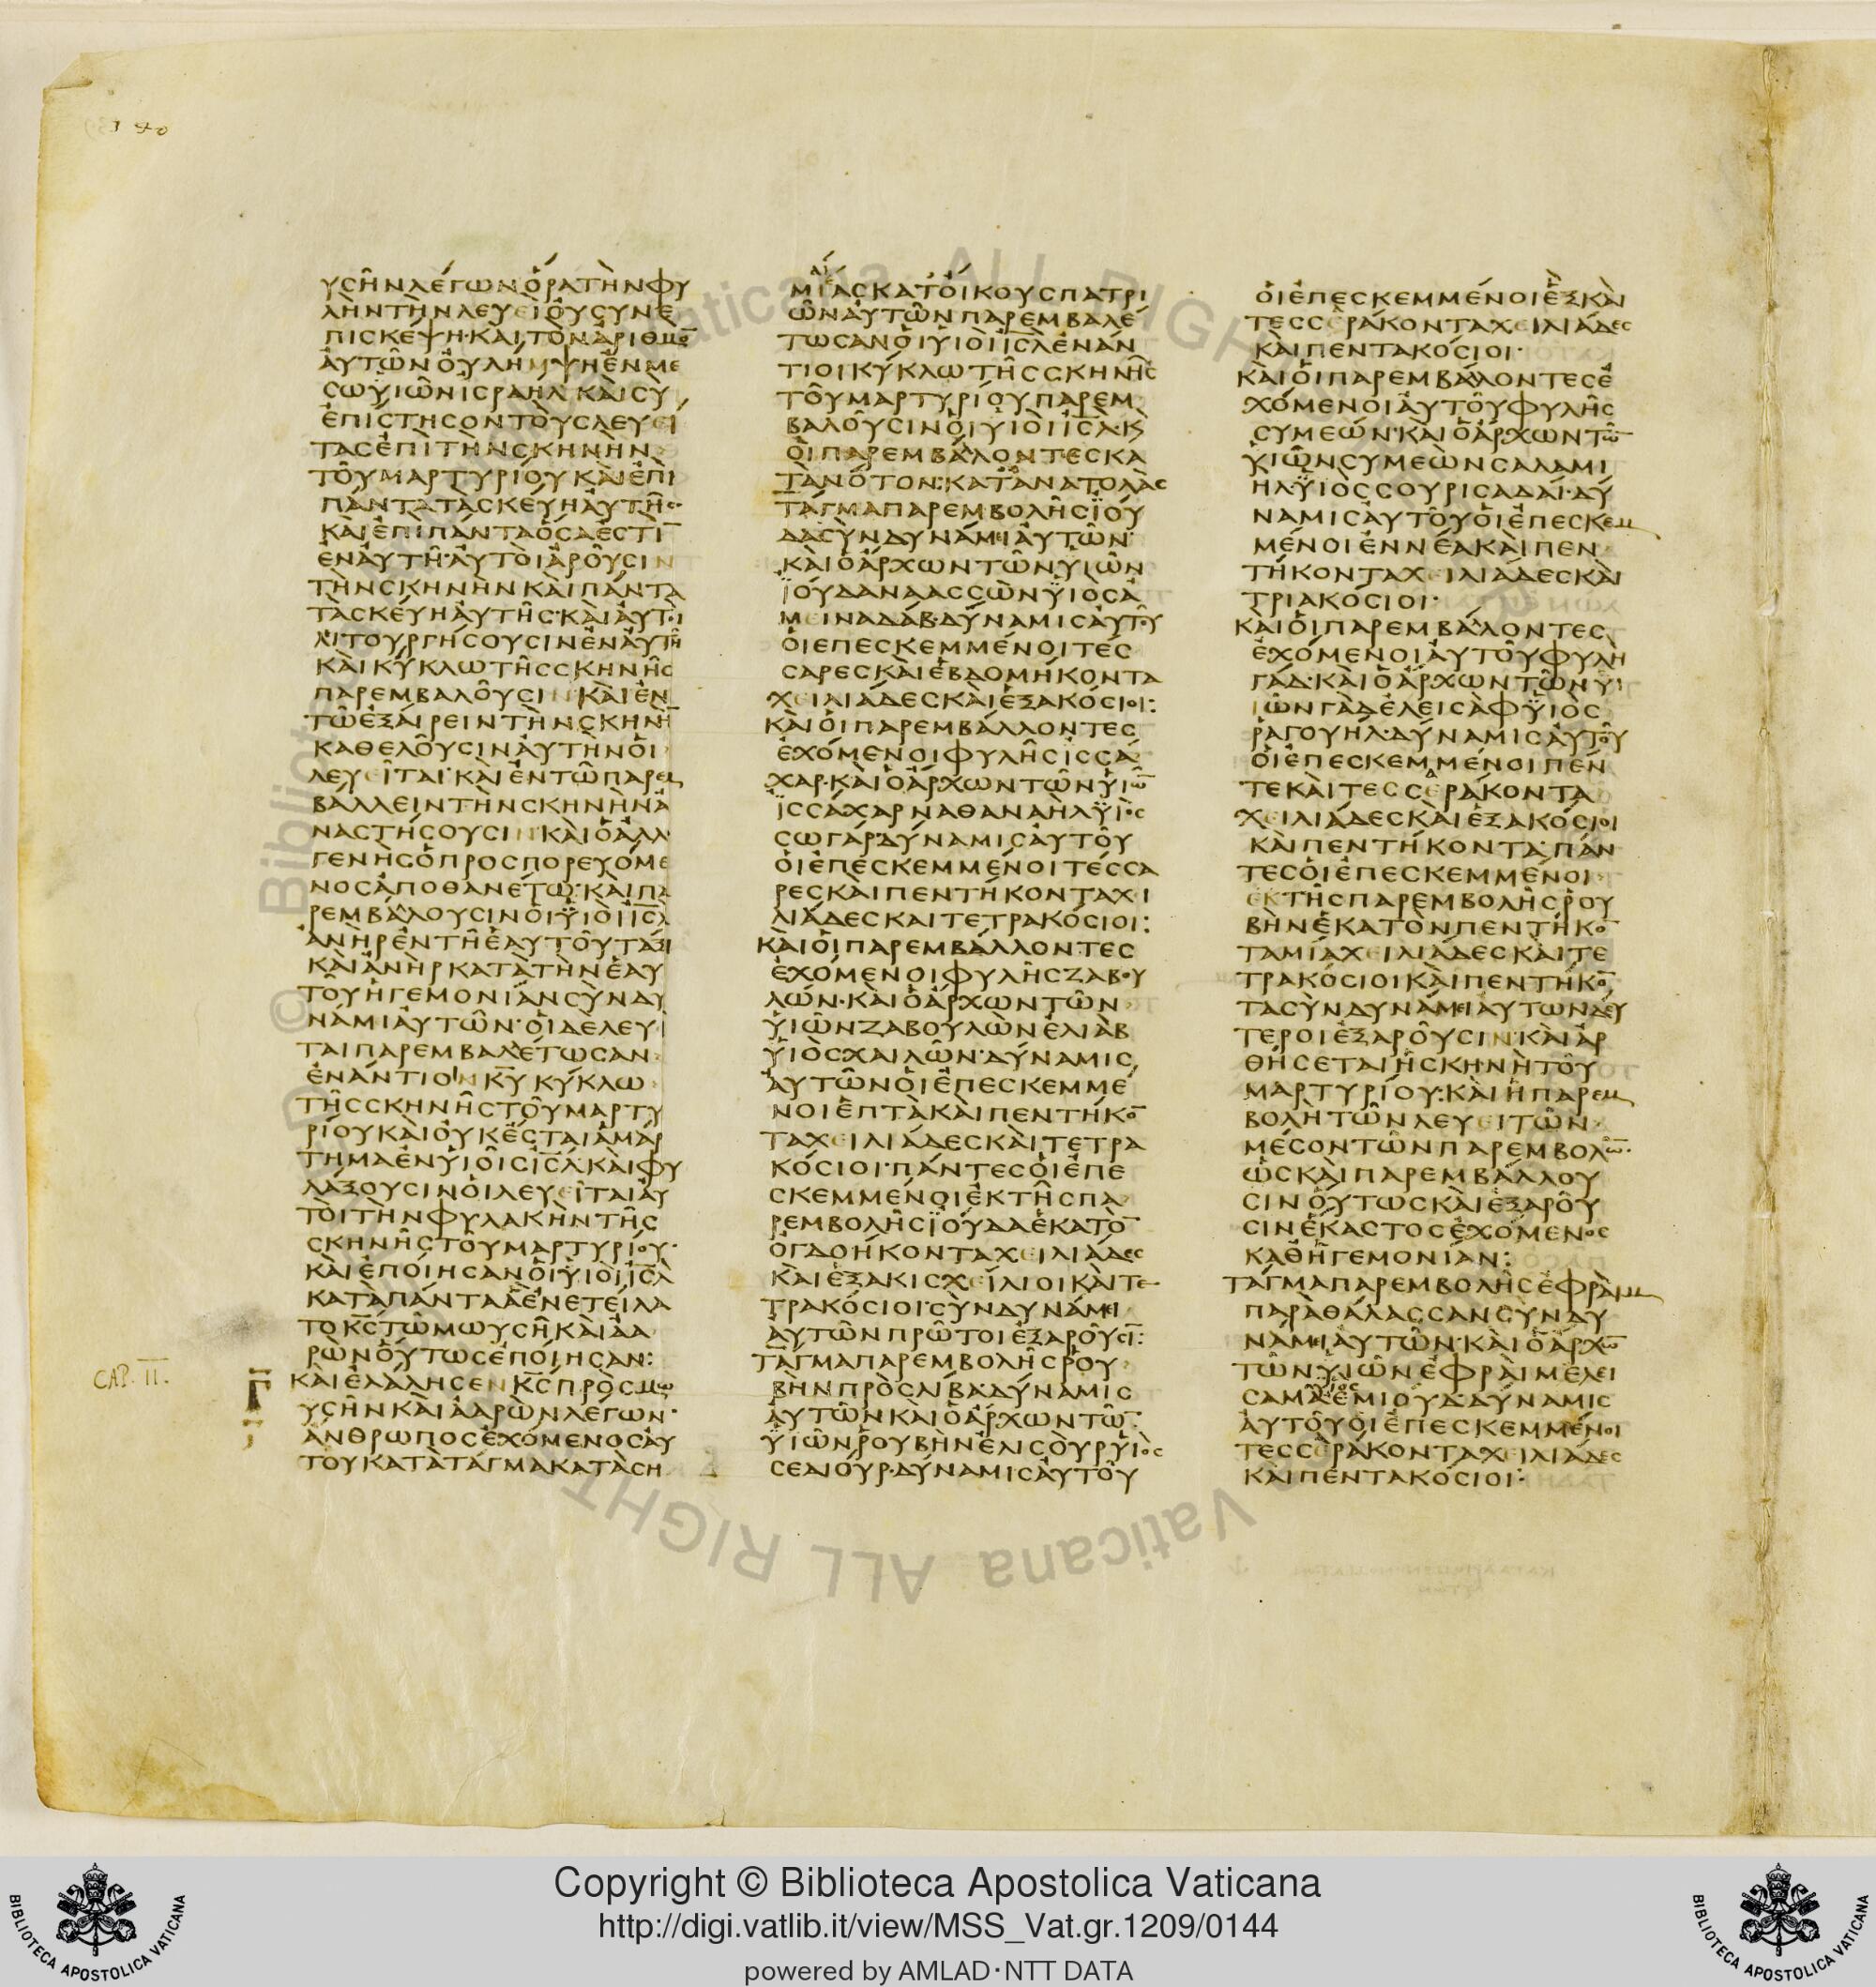 ΥCΗΝΛΕΓΩΝ·ΟΡΑΤΗΝΦΥ
ΛΗΝΤΗΝΛΕΥΕΙΟΥCΥΝΕ
ΠΙCΚΕΨΗ·ΚΑΙΤΟΝΑΡΙΘΜΟ̅
ΑΥΤΩΝΟΥΛΗΜΨΗΕΝΜΕ
CΩΥΙΩΝΙCΡΑΗΛ·ΚΑΙCΥ
ΕΠΙCΤΗCΟΝΤΟΥCΛΕΥΕΙ
ΤΑCΕΠΙΤΗΝCΚΗΝΗΝ
ΤΟΥΜΑΡΤΥΡΙΟΥΚΑΙΕΠΙ
ΠΑΝΤΑΤΑCΚΕΥΗΑΥΤΗC·
ΚΑΙΕΠΙΠΑΝΤΑΟCΑΕCΤΙ̅
ΕΝΑΥΤΗ·ΑΥΤΟΙΑΡΟΥCΙΝ
ΤΗΝCΚΗΝΗΝΚΑΙΠΑΝΤΑ
ΤΑCΚΕΥΗΑΥΤΗC·ΚΑΙΑΥΤΟΙ
ΛΙΤΟΥΡΓΗCΟΥCΙΝΕΝΑΥΤΗ
ΚΑΙΚΥΚΛΩΤΗCCΚΗΝΗC
ΠΑΡΕΜΒΑΛΟΥCΙΝΚΑΙΕΝ
ΤΩΕΞΑΙΡΕΙΝΤΗΝCΚΗΝΗ̅
ΚΑΘΕΛΟΥCΙΝΑΥΤΗΝΟΙ
ΛΕΥΕΙΤΑΙ·ΚΑΙΕΝΤΩΠΑΡΕΜ
ΒΑΛΛΕΙΝΤΗΝCΚΗΝΗΝΑ
ΝΑCΤΗCΟΥCΙΝΚΑΙΟΑΛΛΟ
ΓΕΝΗCΟΠΡΟCΠΟΡΕΥΟΜΕ
ΝΟCΑΠΟΘΑΝΕΤΩ·ΚΑΙΠΑ
ΡΕΜΒΑΛΟΥCΙΝΟΙΥΙΟΙΙC̅Λ̅
ΑΝΗΡΕΝΤΗΕΑΥΤΟΥΤΑΞΙ
ΚΑΙΑΝΗΡΚΑΤΑΤΗΝΕΑΥ
ΤΟΥΗΓΕΜΟΝΙΑΝCΥΝΔΥ
ΝΑΜΙΑΥΤΩΝ·ΟΙΔΕΛΕΥΙ
ΤΑΙΠΑΡΕΜΒΑΛΕΤΩCΑΝ
ΕΝΑΝΤΙΟΝΚ̅Υ̅ΚΥΚΛΩ
ΤΗCCΚΗΝΗCΤΟΥΜΑΡΤΥ
ΡΙΟΥΚΑΙΟΥΚΕCΤΑΙΑΜΑΡ
ΤΗΜΑΕΝΥΙΟΙCΙC̅Λ̅·ΚΑΙΦΥ
ΛΑΞΟΥCΙΝΟΙΛΕΥΕΙΤΑΙΑΥ
ΤΟΙΤΗΝΦΥΛΑΚΗΝΤΗC
CΚΗΝΗCΤΟΥΜΑΡΤΥΡΙΟΥ·
ΚΑΙΕΠΟΙΗCΑΝΟΙΥΙΟΙΙC̅Λ̅
ΚΑΤΑΠΑΝΤΑΑΕΝΕΤΕΙΛΑ
ΤΟΚ̅C̅ΤΩΜΩΥCΗΚΑΙΑΑ
ΡΩΝΟΥΤΩCΕΠΟΙΗCΑΝ:
CAP. II.
Γ̅
ΚΑΙΕΛΑΛΗCΕΝΚ̅C̅ΠΡΟCΜΩ
ΥCΗΝΚΑΙΑΑΡΩΝΛΕΓΩΝ·
ΑΝΘΡΩΠΟCΕΧΟΜΕΝΟCΑΥ
ΤΟΥΚΑΤΑΤΑΓΜΑΚΑΤΑCΗ
ΜΙΑCΚΑΤΟΙΚΟΥCΠΑΤΡΙ
ΩΝΑΥΤΩΝΠΑΡΕΜΒΑΛΕ
ΤΩCΑΝΟΙΥΙΟΙΙC̅Λ̅ΕΝΑΝ
ΤΙΟΙΚΥΚΛΩΤΗCCΚΗΝΗC
ΤΟΥΜΑΡΤΥΡΙΟΥΠΑΡΕΜ
ΒΑΛΟΥCΙΝΟΙΥΙΟΙΙC̅Λ̅·Κ
ΟΙΠΑΡΕΜΒΑΛΟΝΤΕCΚΑ
ΤΑΝΟΤΟΝ:ΚΑΤΑΝΑΤΟΛΑC
ΤΑΓΜΑΠΑΡΕΜΒΟΛΗCΙΟΥ
ΔΑCΥΝΔΥΝΑΜΕΙΑΥΤΩΝ·
ΚΑΙΟΑΡΧΩΝΤΩΝΥΙΩΝ
ΙΟΥΔΑΝΑΑCCΩΝΥΙΟCΑ
ΜΕΙΝΑΔΑΒ·ΔΥΝΑΜΙCΑΥΤΟΥ
ΟΙΕΠΕCΚΕΜΜΕΝΟΙΤΕC
CΑΡΕCΚΑΙΕΒΔΟΜΗΚΟΝΤΑ
ΧΕΙΛΙΑΔΕCΚΑΙΕΞΑΚΟCΙΟΙ:
ΚΑΙΟΙΠΑΡΕΜΒΑΛΛΟΝΤΕC
ΕΧΟΜΕΝΟΙΦΥΛΗCΙCCΑ
ΧΑΡ·ΚΑΙΟΑΡΧΩΝΤΩΝΥΙΩ̅
ΙCCΑΧΑΡΝΑΘΑΝΑΗΛΥΙΟC
CΩΓΑΡ·ΔΥΝΑΜΙCΑΥΤΟΥ
ΟΙΕΠΕCΚΕΜΜΕΝΟΙΤΕCCΑ
ΡΕCΚΑΙΠΕΝΤΗΚΟΝΤΑΧΕΙ
ΛΙΑΔΕCΚΑΙΤΕΤΡΑΚΟCΙΟΙ:
ΚΑΙΟΙΠΑΡΕΜΒΑΛΛΟΝΤΕC
ΕΧΟΜΕΝΟΙΦΥΛΗCΖΑΒΟΥ
ΛΩΝ·ΚΑΙΟΑΡΧΩΝΤΩΝ
ΥΙΩΝΖΑΒΟΥΛΩΝΕΛΙΑΒ
ΥΙΟCΧΑΙΛΩΝ·ΔΥΝΑΜΙC
ΑΥΤΩΝΟΙΕΠΕCΚΕΜΜΕ
ΝΟΙΕΠΤΑΚΑΙΠΕΝΤΗΚΟ̅
ΤΑΧΕΙΛΙΑΔΕCΚΑΙΤΕΤΡΑ
ΚΟCΙΟΙ·ΠΑΝΤΕCΟΙΕΠΕ
CΚΕΜΜΕΝΟΙΕΚΤΗCΠΑ
ΡΕΜΒΟΛΗCΙΟΥΔΑΕΚΑΤΟ̅
ΟΓΔΟΗΚΟΝΤΑΧΕΙΛΙΑΔΕC
ΚΑΙΕΞΑΚΙCΧΕΙΛΙΟΙΚΑΙΤΕ
ΤΡΑΚΟCΙΟΙ·CΥΝΔΥΝΑΜΕΙ
ΑΥΤΩΝΠΡΩΤΟΙΕΞΑΡΟΥCΙ̅:
ΤΑΓΜΑΠΑΡΕΜΒΟΛΗCΡΟΥ
ΒΗΝΠΡΟCΛΙΒΑ·ΔΥΝΑΜΙC
ΑΥΤΩΝΚΑΙΟΑΡΧΩΝΤΩ̅
ΥΙΩΝΡΟΥΒΗΝΕΛΙCΟΥΡΥΙΟC
CΕΔΙΟΥΡ·ΔΥΝΑΜΙCΑΥΤΟΥ
ΟΙΕΠΕCΚΕΜΜΕΝΟΙΕΞΚΑΙ
ΤΕCCΕΡΑΚΟΝΤΑΧΕΙΛΙΑΔΕC
ΚΑΙΠΕΝΤΑΚΟCΙΟΙ·
ΚΑΙΟΙΠΑΡΕΜΒΑΛΟΝΤΕCΕ
ΧΟΜΕΝΟΙΑΥΤΟΥΦΥΛΗC
CΥΜΕΩΝ·ΚΑΙΟΑΡΧΩΝΤΩ̅
ΥΙΩΝCΥΜΕΩΝCΑΛΑΜΙ
ΗΛ·ΥΙΟCCΟΥΡΙCΑΔΑΙ·ΔΥ
ΝΑΜΙCΑΥΤΟΥΟΙΕΠΕCΚΕΜ
ΜΕΝΟΙΕΝΝΕΑΚΑΙΠΕΝ
ΤΗΚΟΝΤΑΧΕΙΛΙΑΔΕCΚΑΙ
ΤΡΙΑΚΟCΙΟΙ·
ΚΑΙΟΙΠΑΡΕΜΒΑΛΟΝΤΕC
ΕΧΟΜΕΝΟΙΑΥΤΟΥΦΥΛΗ
ΓΑΔ·ΚΑΙΟΑΡΧΩΝΤΩΝΥ
ΙΩΝΓΑΔΕΛΕΙCΑΦΥΙΟC
ΡΑΓΟΥΗΛ·ΔΥΝΑΜΙCΑΥΤΟΥ
ΟΙΕΠΕCΚΕΜΜΕΝΟΙΠΕΝ
ΤΕΚΑΙΤΕCCΕΡΑΚΟΝΤΑ
ΧΕΙΛΙΑΔΕCΚΑΙΕΞΑΚΟCΙΟΙ
ΚΑΙΠΕΝΤΗΚΟΝΤΑ·ΠΑΝ
ΤΕCΟΙΕΠΕCΚΕΜΜΕΝΟΙ
ΕΚΤΗCΠΑΡΕΜΒΟΛΗCΡΟΥ
ΒΗΝΕΚΑΤΟΝΠΕΝΤΗΚΟ̅
ΤΑΜΙΑΧΕΙΛΙΑΔΕCΚΑΙΤΕ
ΤΡΑΚΟCΙΟΙΚΑΙΠΕΝΤΗΚΟ̅
ΤΑCΥΝΔΥΝΑΜΕΙΑΥΤΩΝΔΕΥ
ΤΕΡΟΙΕΞΑΡΟΥCΙΝ·ΚΑΙΑΡ
ΘΗCΕΤΑΙΗCΚΗΝΗΤΟΥ
ΜΑΡΤΥΡΙΟΥ·ΚΑΙΗΠΑΡΕΜ
ΒΟΛΗΤΩΝΛΕΥΕΙΤΩΝ
ΜΕCΟΝΤΩΝΠΑΡΕΜΒΟΛΩ̅·
ΩCΚΑΙΠΑΡΕΜΒΑΛΛΟΥ
CΙΝΟΥΤΩCΚΑΙΕΞΑΡΟΥ
CΙΝΕΚΑCΤΟCΕΧΟΜΕΝΟC
ΚΑΘΗΓΕΜΟΝΙΑΝ:
ΤΑΓΜΑΠΑΡΕΜΒΟΛΗCΕΦΡΑΙΜ
ΠΑΡΑΘΑΛΑCCΑΝCΥΝΔΥ
ΝΑΜΕΙΑΥΤΩΝ·ΚΑΙΟΑΡΧΩ̅
ΤΩΝΥΙΩΝΕΦΡΑΙΜΕΛΕΙ
CΑΜΑΥΙΟCΕΜΙΟΥΔ·ΔΥΝΑΜΙC
ΑΥΤΟΥΟΙΕΠΕCΚΕΜΜΕΝΟΙ
ΤΕCCΕΡΑΚΟΝΤΑΧΕΙΛΙΑΔΕC
ΚΑΙΠΕΝΤΑΚΟCΙΟΙ:
Copyright © Biblioteca Apostolica Vaticana
http://digi.vatlib.it/view/MSS_Vat.gr.1209/0144
powered by AMLAD·NTT DATA
BIBLIOTECA APOSTOLICA VATICANA
BIBLIOTECA APOSTOLICA VATICANA